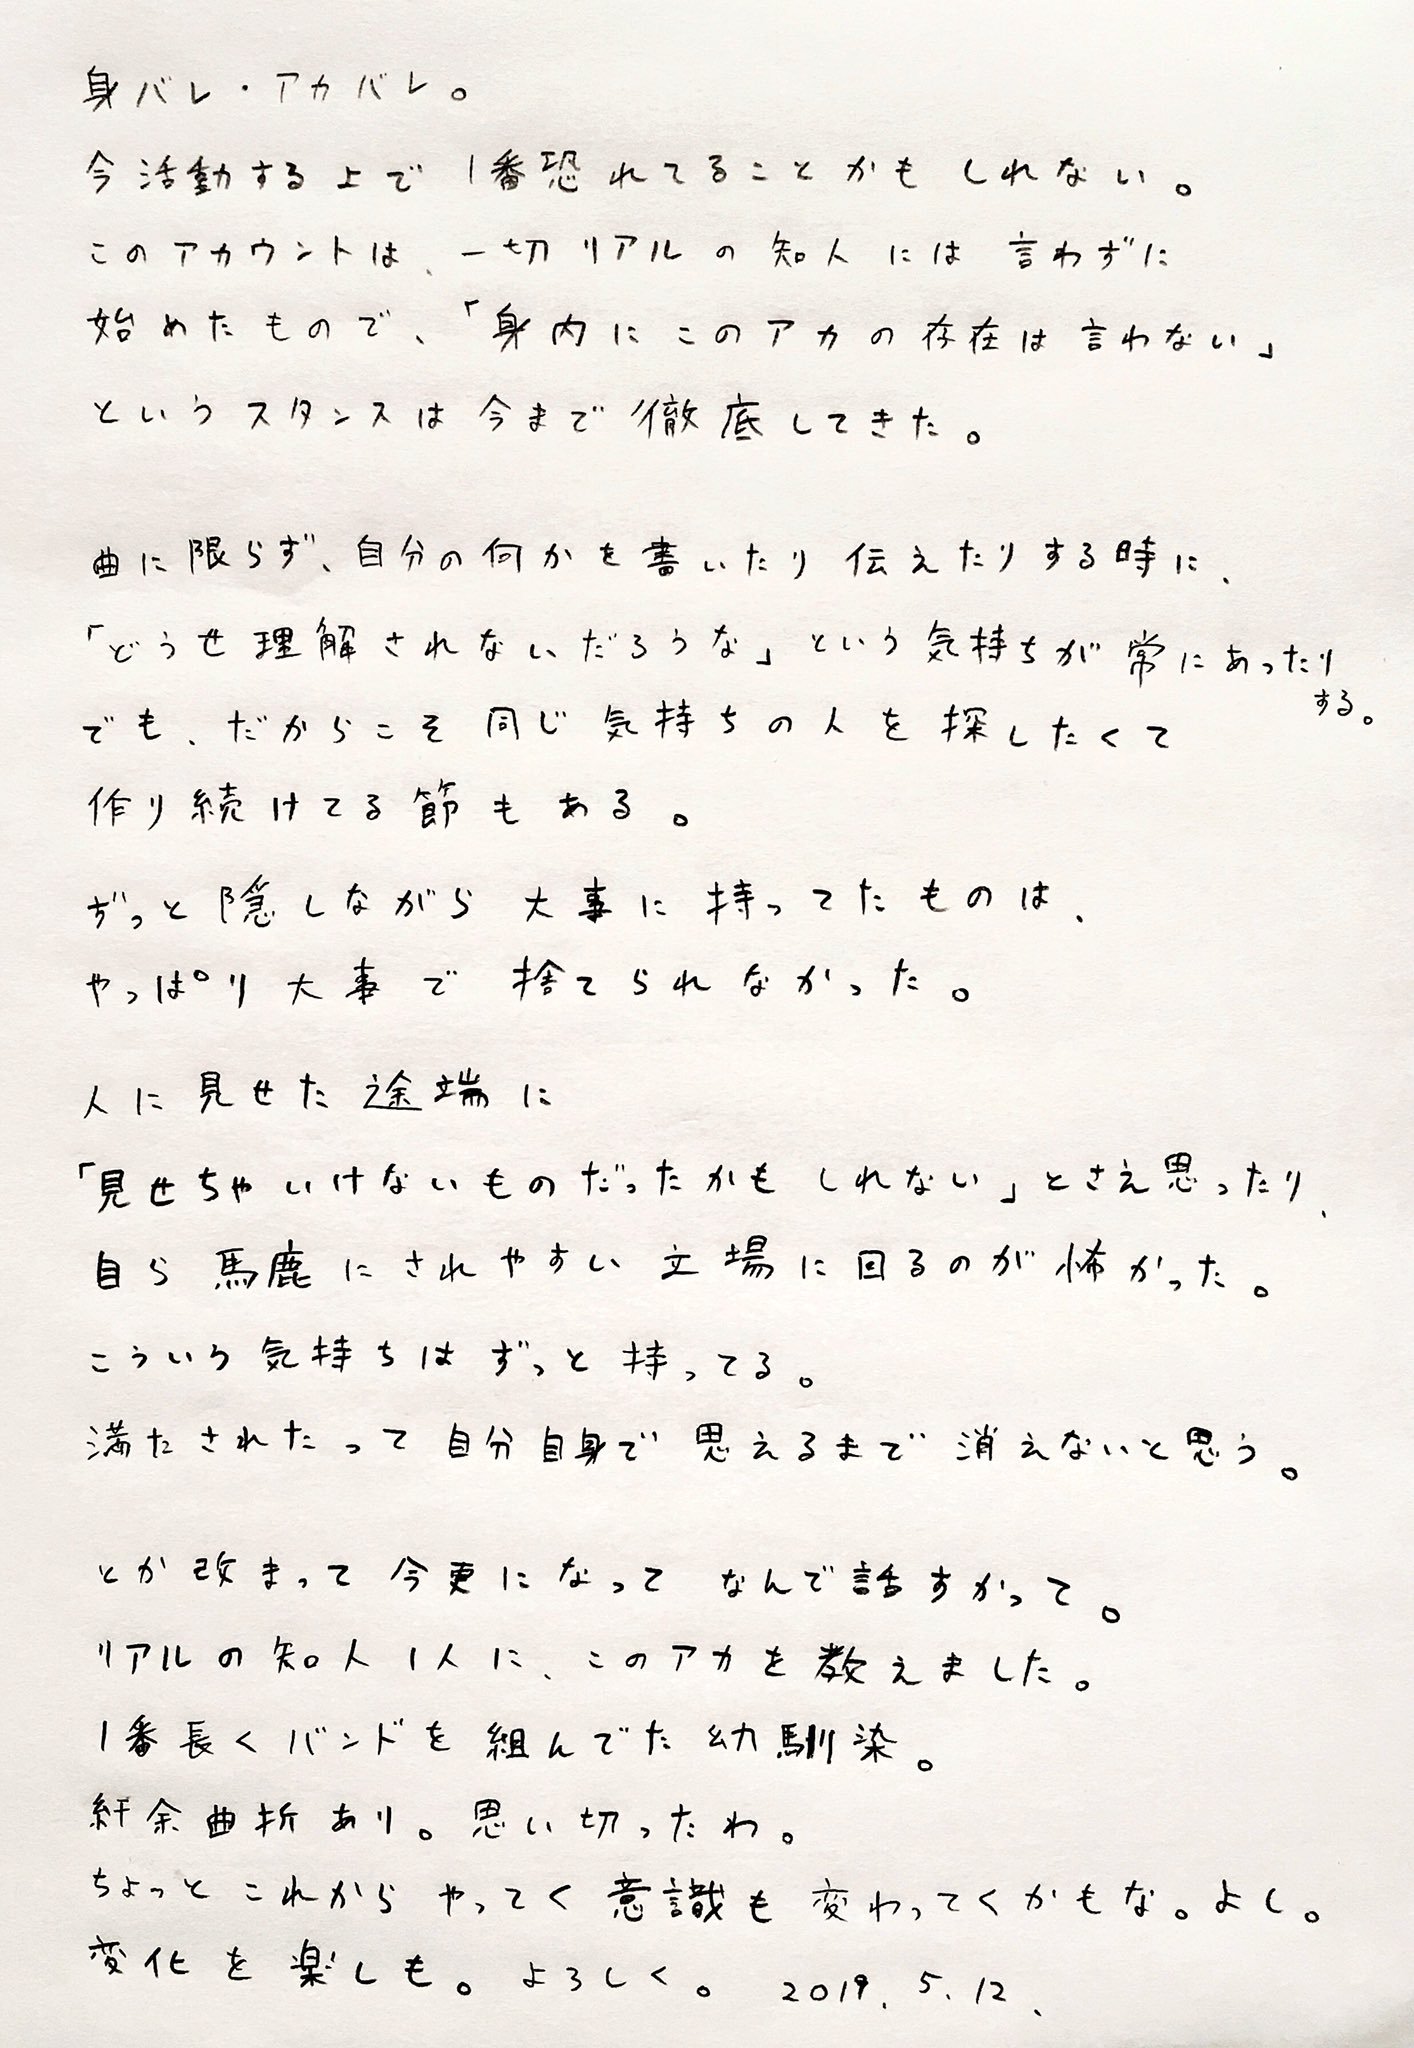 身バレ・アカバレ。
今活動する上で1番恐れてることかもしれない。
このアカウントは、一切リアルの知人には言わずに
始めたもので、「身内にこのアカの存在は言わない」
というスタンスは今まで徹底してきた。
曲に限らず、自分の何かを書いたり伝えたりする時に、
「どうせ理解されないだろうな」という気持ちが常にあったり
する。
でも、だからこそ同じ気持ちの人を探したくて
作り続けてる節もある。
ずっと隠しながら大事に持ってたものは、
やっぱり大事で捨てられなかった。
人に見せた途端に
「見せちゃいけないものだったかもしれない」とさえ思ったり、
自ら馬鹿にされやすい立場に回るのが怖かった。
こういう気持ちはずっと持ってる。
満たされたって自分自身で思えるまで消えないと思う。
とか改まって今更になってなんで話すかって。
リアルの知人1人に、このアカを教えました。
1番長くバンドを組んでた幼馴染。
紆余曲折あり。思い切ったわ。
ちょっとこれからやってく意識も変わってくかもな。よし。
変化を楽しも。よろしく。 2019.5.12.